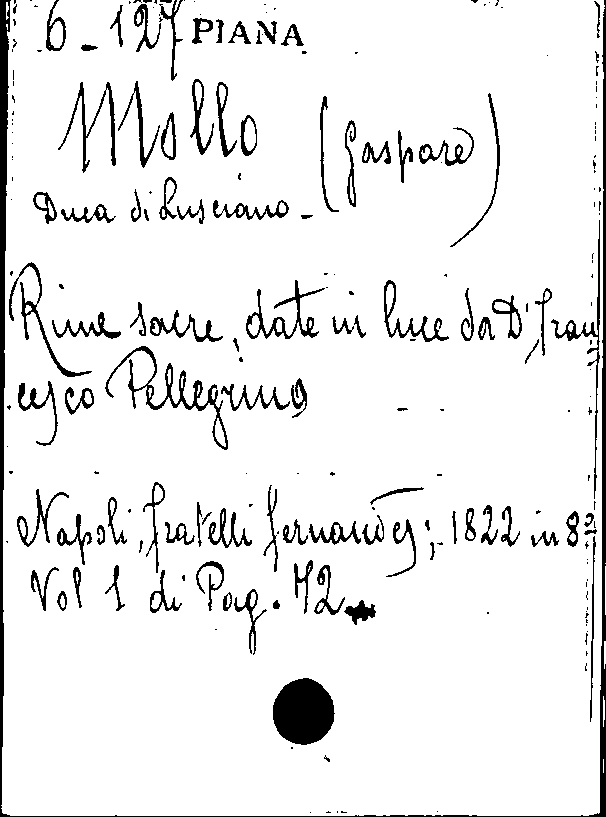 6-127 PIANA
Mollo (Gaspare)
Duca di Lusciano-
Rime sacre, date in luce da D. Fran
cesco Pellegrino
Napoli, fratelli Fernandes; 1822 in 8º
Vol 1 di Pag. 72